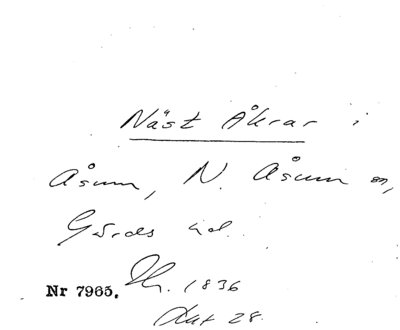 Näst Åkrar i
Åsum, N. Åsum sn,
Gärds hd.
Nr 7965. 1836
28